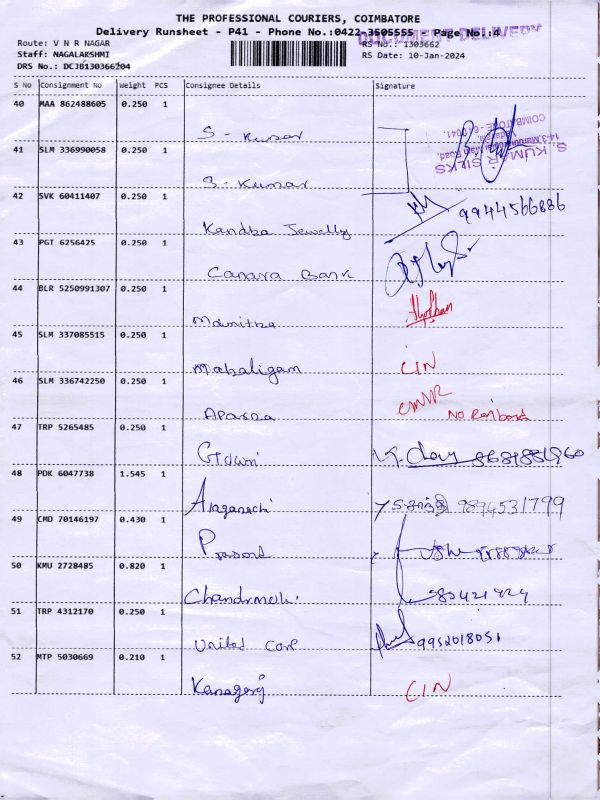 THE PROFESSIONAL COURIERS, COIMBATORE
Delivery Runsheet - P41 - Phone No.:0422-3505555 Page No.:4
DOCUMENT DELIVERY
Route: V N R NAGAR
RS No.: 1303662
Staff: NAGALAKSHMI
RS Date: 10-Jan-2024
DRS No.: DCJB130366204
S No Consignment No Weight PCS Consignee Details Signature
40 MAA 862488605 0.250 1
S - Kumar
S. KUMAR SILKS
COIMBATORE - 641 041.
41 SLM 336990058 0.250 1
S. Kumar
42 SVK 60411407 0.250 1
9944566886
Kandba Jewelly
43 PGT 6256425 0.250 1
Canara Bank
44 BLR 5250991307 0.250 1
Mamitha
45 SLM 337085515 0.250 1
Mahaligam CIN
46 SLM 336742250 0.250 1
Aparna
47 TRP 5265485 0.250 1
48 PDK 6047738 1.545 1
9894531799
49 CMD 70146197 0.430 1
Prasord
50 KMU 2728485 0.820 1
51 TRP 4312170 0.250 1
United Corp 9952018051
52 MTP 5030669 0.210 1
Kanagaraj CIN